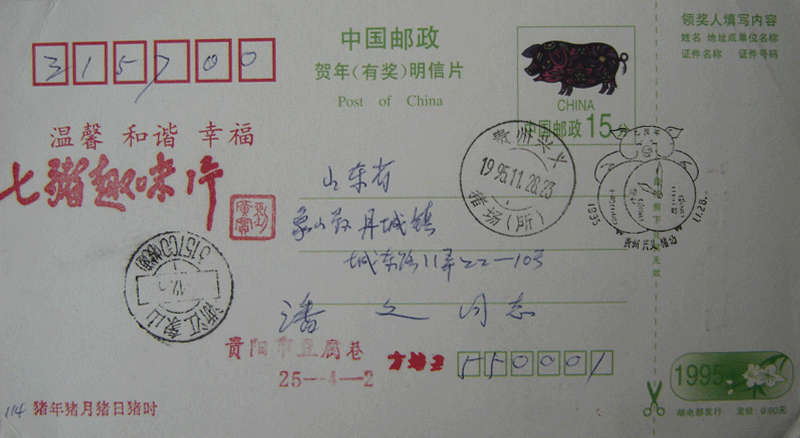 315700
中国邮政
贺年(有奖)明信片
Post of China
CHINA
中国邮政15分
领奖人填写内容
姓名 地址或单位名称
证件名称 证件号码
温馨 和谐 幸福
七猪趣味片
贵州兴义
1995.11.28.23
猪场(所)
1995
11.28
山东省
象山县丹城镇
城东路11弄22-10号
潘文同志
浙江象山
贵阳市豆腐巷
25-4-2
550001
114 猪年猪月猪日猪时
1995
邮电部发行 定价:0.60元